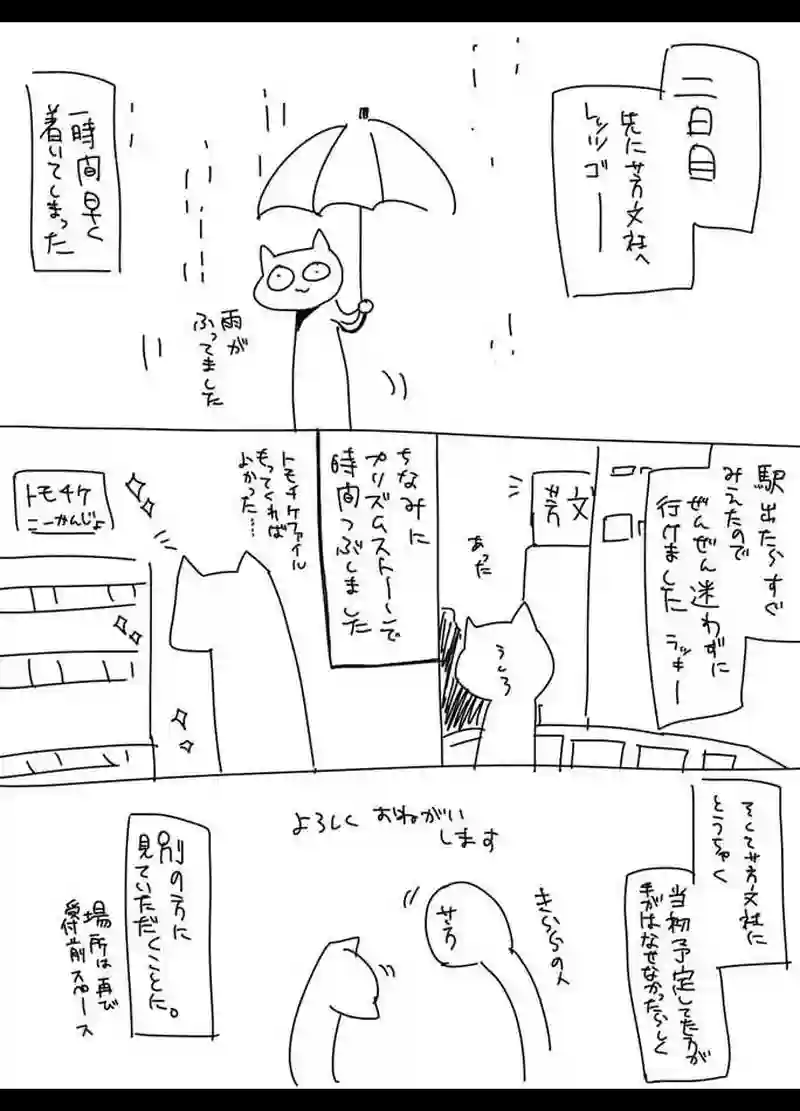 二日目
先に芳文社へ
レッツゴー
一時間早く
着いてしまった
雨が
ふってました
駅出たらすぐ
みえたので
ぜんぜん迷わずに
行けました ラッキー
芳文
あった
うしろ
ちなみに
プリズムストーンで
時間つぶしました
トモチケファイル
もってくれば
よかった…
トモチケ
こーかんじょ
そして芳文社に
とうちゃく
当初予定してた方が
手がはなせなかったらしく
きららの人
芳
よろしく おねがい
します
別の方に
見ていただくことに。
場所は再び
受付前スペース